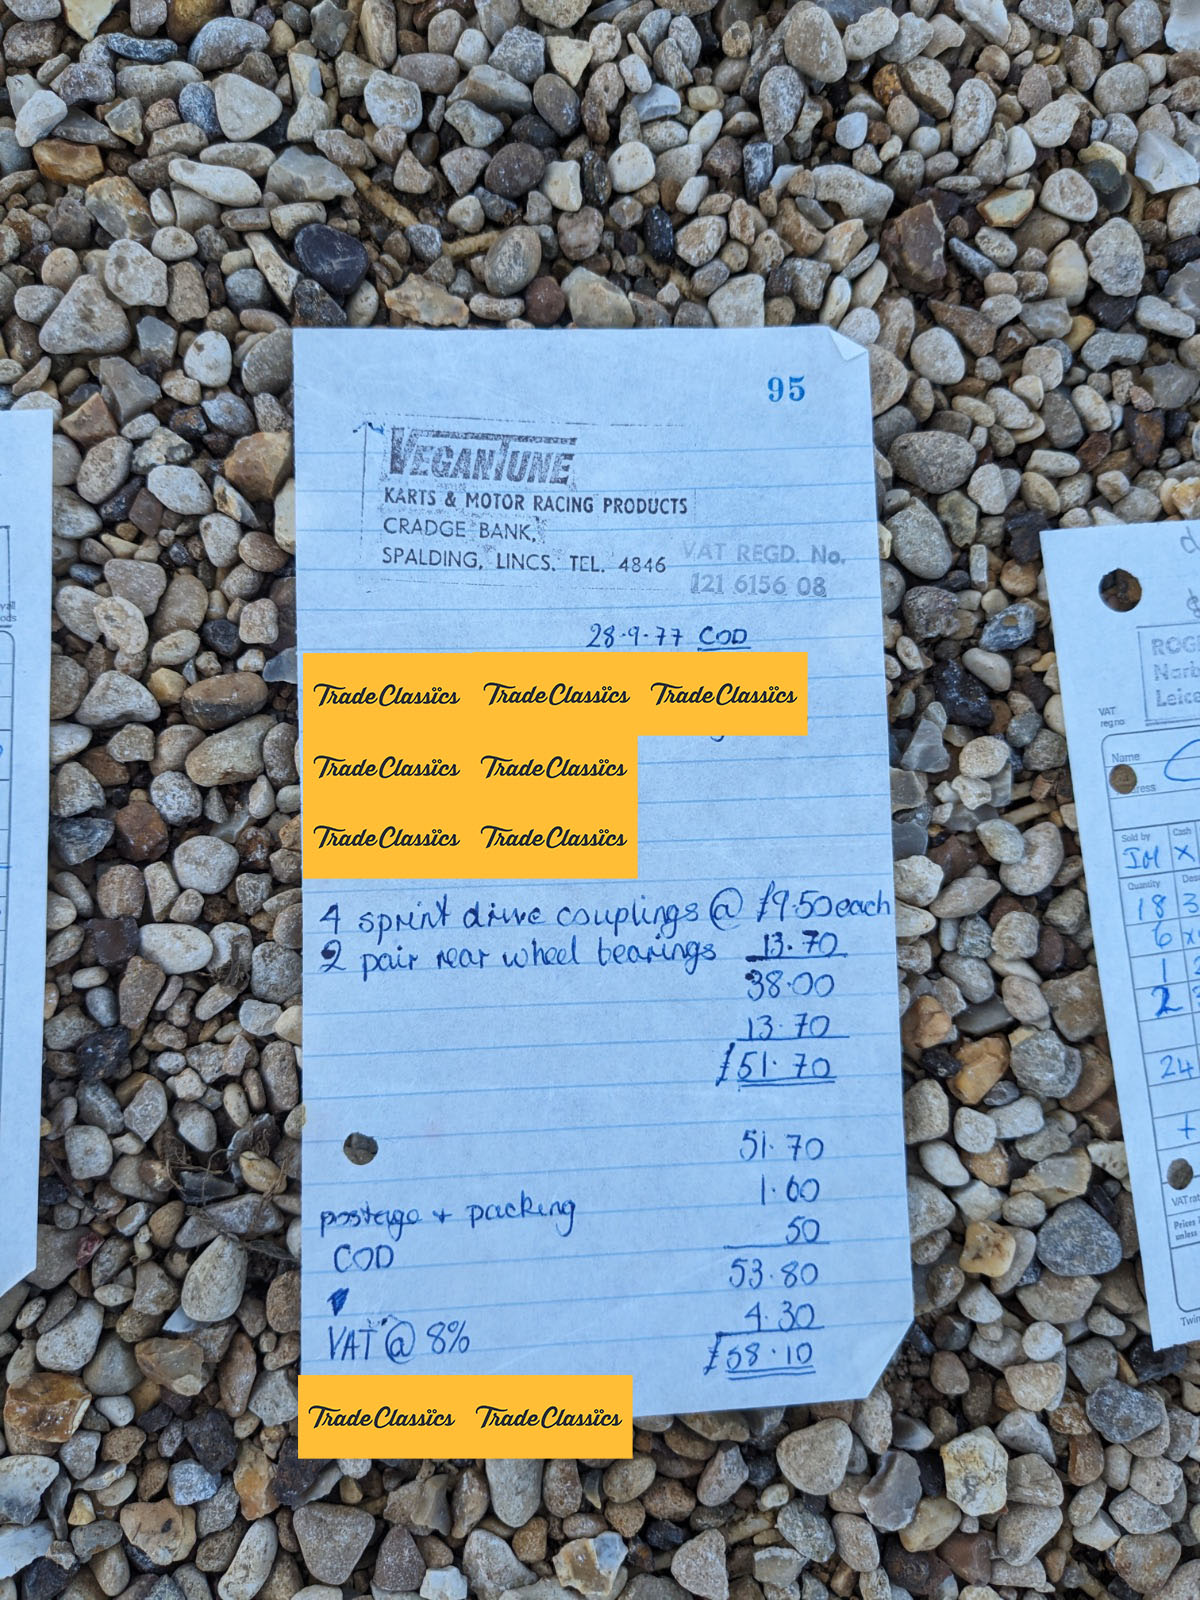 95
VEGANTUNE
KARTS & MOTOR RACING PRODUCTS
CRADGE BANK,
SPALDING, LINCS. TEL. 4846
VAT REGD. No.
121 6156 08
28·9·77 COD
TradeClassics TradeClassics TradeClassics
TradeClassics TradeClassics
TradeClassics TradeClassics
4 sprint drive couplings @ £9.50 each
2 pair rear wheel bearings 13.70
38.00
13.70
£51.70
51.70
postage + packing 1.60
COD 50
53.80
VAT @ 8% 4.30
£58.10
TradeClassics TradeClassics
VAT
reg no
Name
Sold by Cash
IM X
Quantity
18 3
6
1
2
24
+